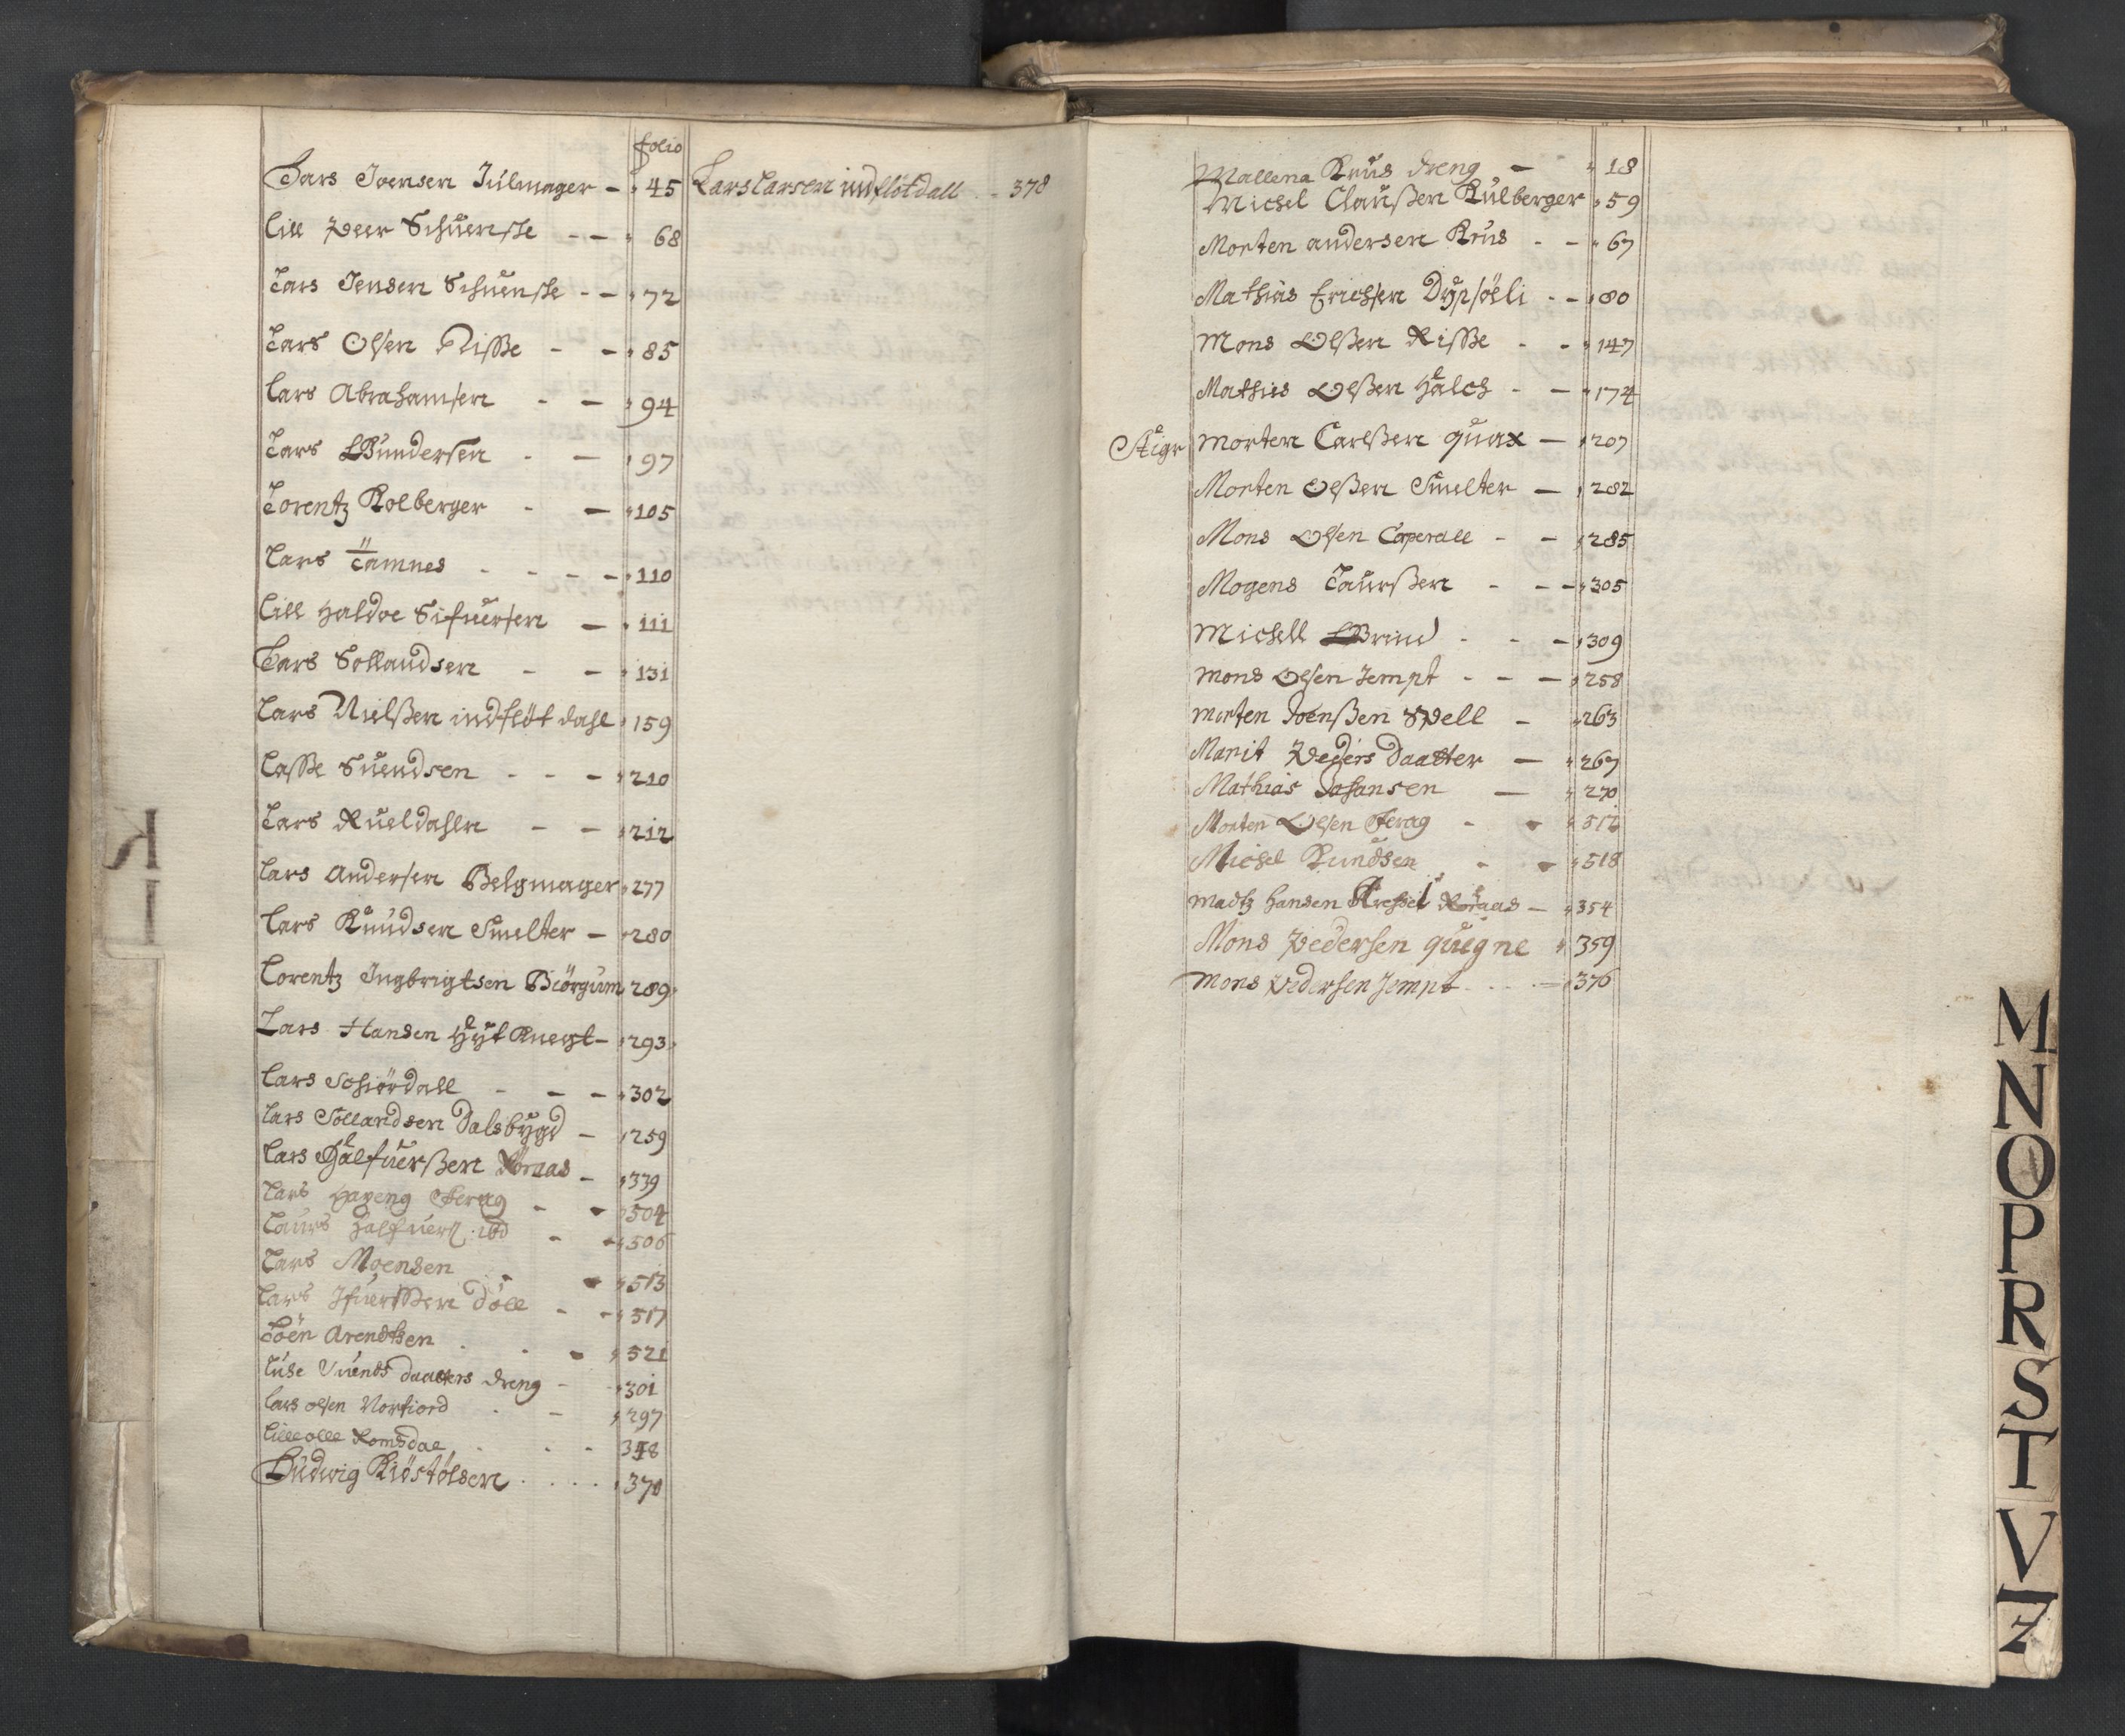 folio
Lars Joensen Julmager - 45
Lill Peer Schuenske - - 68
Lars Jensen Schuenske - - 72
Lars Olsen Risse - - 85
Lars Abrahamsen - - 94
Lars Gundersen - - 97
Lorentz Kolberger - - 105
Lars Tamnes - - - - 110
Lill Haldoe Sifuersen - 111
Lars Sollandsen - - 131
Lars Nielßen indfløt dahl 159
Lasse Suendsen - - - 210
Lars Rueldahln - - 212
Lars Andersen Belgmager 277
Lars Knudsen Smelter - 280
Lorentz Ingbrigtsen Biörgum 289
Lars Hansen Hyt Knegt - 293
Lars Schiördall - - - 302
Lars Sollandsen Dalsbygd - 259
Lars Halfuerßen Röraas - 339
Lars Haveng Ferag - - 504
Laurs Halfuers: ibd - - 506
Lars Moensen - - 513
Lars Ifuerßen Döll - - 517
Loen Arendtsen - - - 521
Luse Suends daatters dreng - 301
Lars olsen Norfiord - - 297
Lilleolle Romsdal - - - 348
Ludwig Kiöstølsen . . . . 370
Lars Larsen indfløtdall - - 378
Mallena Krus dreng - 18
Michel Claußen Kulberger 59
Morten andersen Krus - - 67
Mathias Erichsen Dypsöeli - - 80
Mons Olßen Risse - - 147
Mathies Olßen Halch - - 174
Stigr Morten Carlßen quax - 207
Morten Olßen Smelter - 282
Mons Olsen Corperall - - 285
Mogens Laurßen - - - 305
Michell Brind - - - 309
Mons Olsen Jempt - - - 258
Morten Joenßen Spell - 263
Marit Peders Daatter - 267
Mathias Johansen - 270
Morten Olsen Ferag - - 512
Michel Kundsen - - 518
Madtz Hansen Röraas - 354
Mons Pedersen quegne 359
Mons Pedersen Jempt . . . . - 376
K
L
M
N
O
P
R
S
T
V
Z